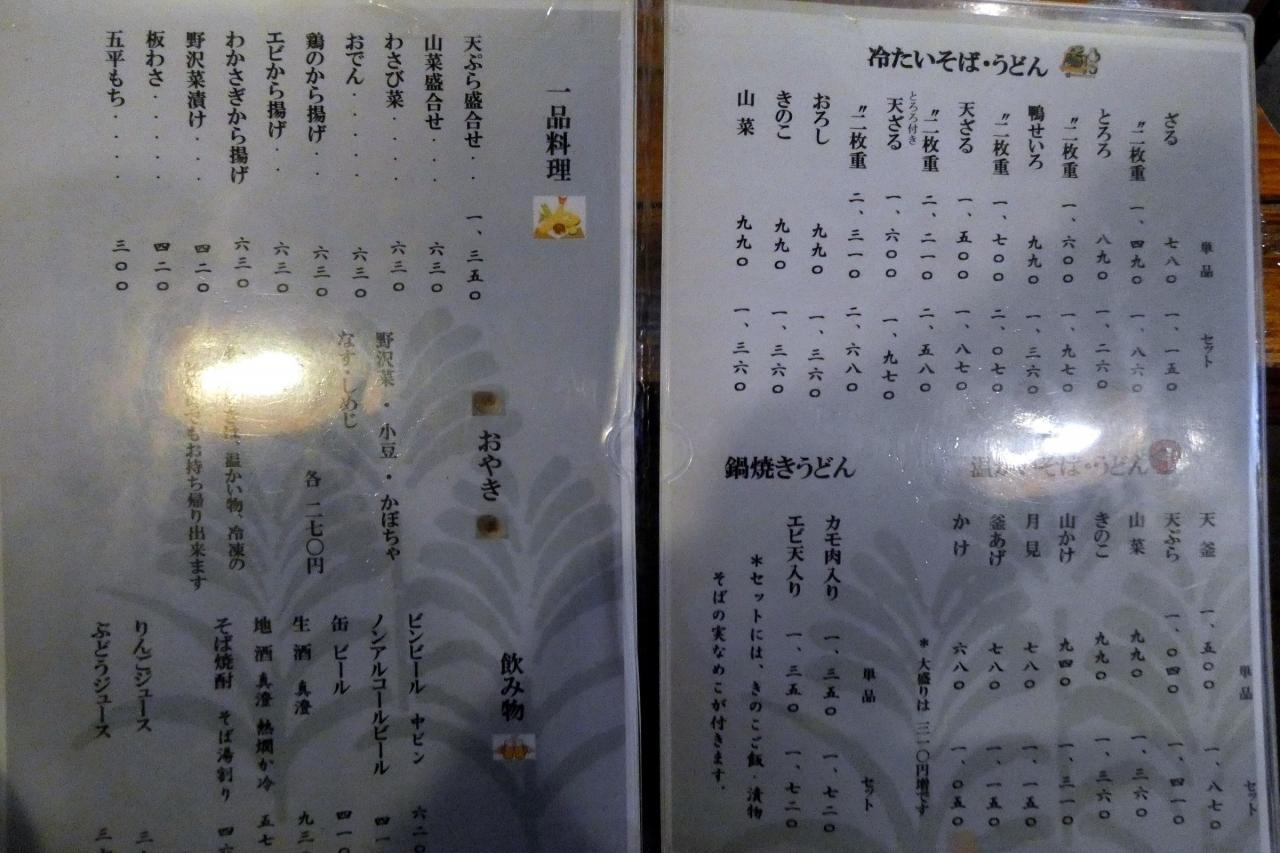 冷たいそば・うどん
単品 セット
ざる 七八〇 一、一五〇
〃二枚重 一、四九〇 一、八六〇
とろろ 八九〇 一、二六〇
〃二枚重 一、六〇〇 一、九七〇
鴨せいろ 九九〇 一、三六〇
〃二枚重 一、七〇〇 二、〇七〇
天ざる 一、五〇〇 一、八七〇
〃二枚重 二、二一〇 二、五八〇
とろろ付き
天ざる 一、六〇〇 一、九七〇
〃二枚重 二、三一〇 二、六八〇
おろし 九九〇 一、三六〇
きのこ 九九〇 一、三六〇
山菜 九九〇 一、三六〇
温かいそば・うどん
単品 セット
天釜 一、五〇〇 一、八七〇
天ぷら 一、〇四〇 一、四一〇
山菜 九九〇 一、三六〇
きのこ 九九〇 一、三六〇
山かけ 九四〇 一、三一〇
月見 七八〇 一、一五〇
釜あげ 七八〇 一、一五〇
かけ 六八〇 一、〇五〇
*大盛りは 三一〇円増です
鍋焼きうどん
単品 セット
カモ肉入り 一、三五〇 一、七二〇
エビ天入り 一、三五〇 一、七二〇
*セットには、きのこご飯・漬物
そばの実なめこが付きます.
一品料理
天ぷら盛合せ・・ 一、三五〇
山菜盛合せ・・ 六三〇
わさび菜・・・ 六三〇
おでん・・・・ 六三〇
鶏のから揚げ・・ 六三〇
エビから揚げ・・ 六三〇
わかさぎから揚げ 六三〇
野沢菜漬け・・ 四二〇
板わさ・・・・ 四二〇
五平もち・・・ 三〇〇
おやき
野沢菜・小豆・かぼちゃ
なす・しめじ
各 二七〇円
は、温かい物、冷凍の
でもお持ち帰り出来ます
飲み物
ビンビール 中ビン 六二〇
ノンアルコールビール 四一
缶ビール 四一〇
生酒 真澄 九三
地酒 真澄 熱燗か冷 五七
そば焼酎 そば湯割り 四六
りんごジュース 三
ぶどうジュース 三